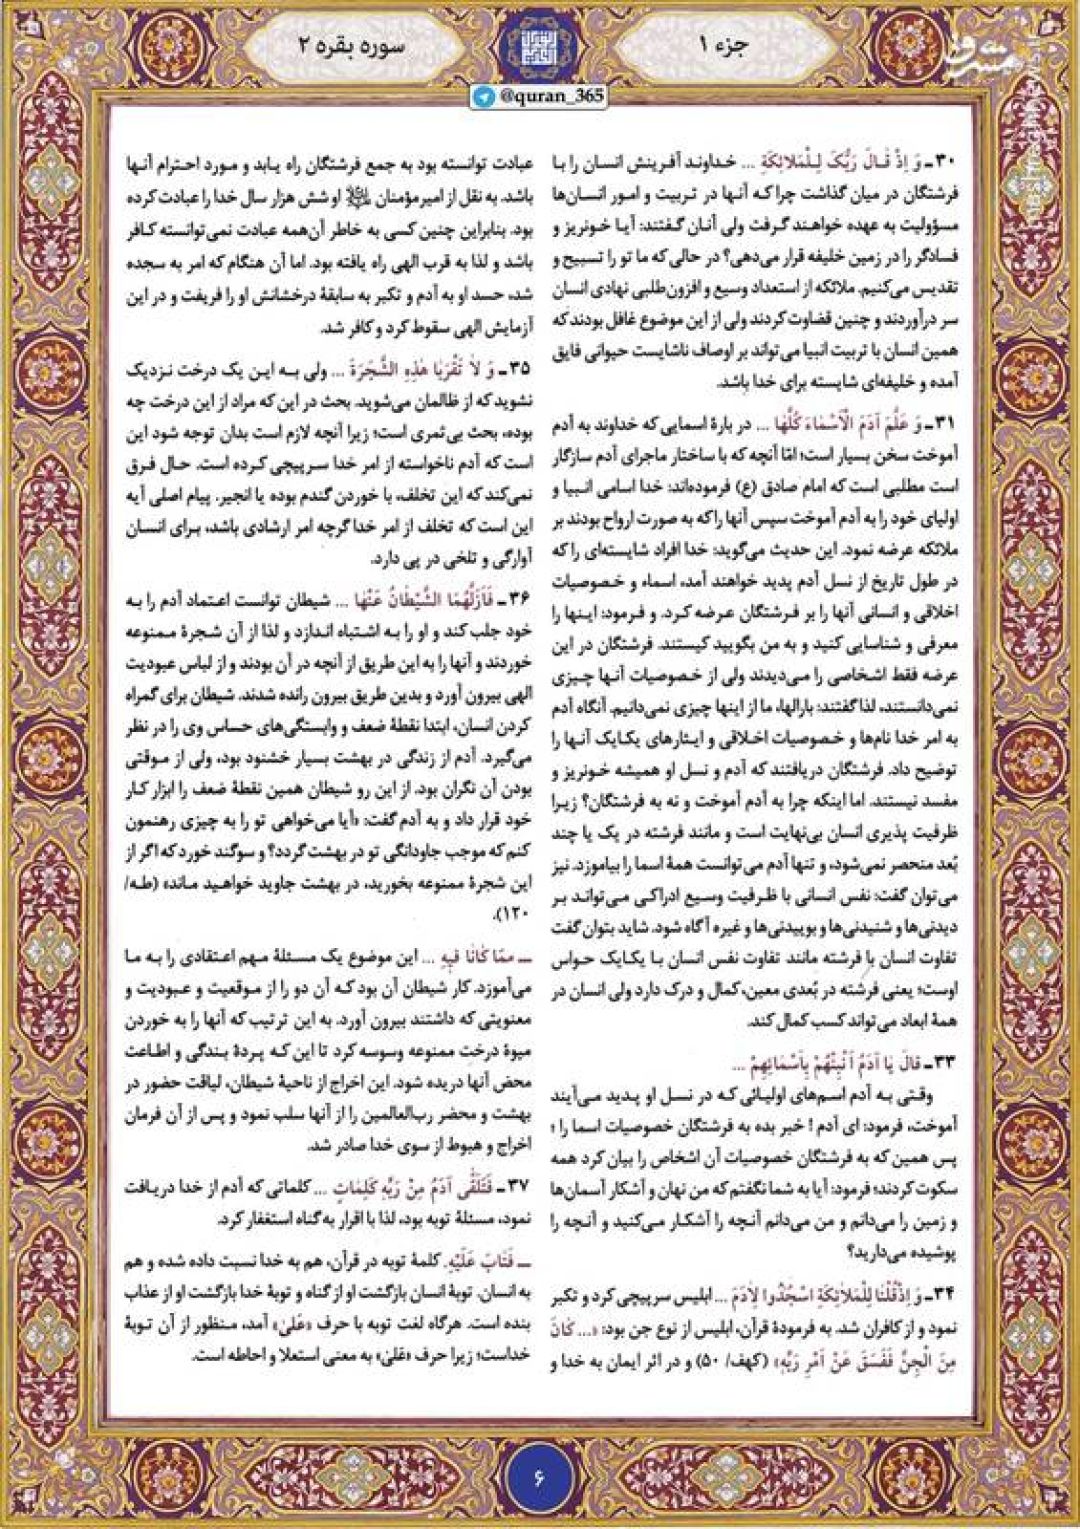 جزء ۱
سوره بقره ۲
@quran_365
۳۰ـ وَ اِذْ قٰالَ رَبُّکَ لِلْمَلائِکَةِ ... خداوند آفرینش انسان را با
فرشتگان در میان گذاشت چرا که آنها در تربیت و امور انسان‌ها
مسؤولیت به عهده خواهند گرفت ولی آنان گفتند: آیا خونریز و
فسادگر را در زمین خلیفه قرار می‌دهی؟ در حالی که ما تو را تسبیح و
تقدیس می‌کنیم. ملائکه از استعداد وسیع و افزون‌طلبی نهادی انسان
سر درآوردند و چنین قضاوت کردند ولی از این موضوع غافل بودند که
همین انسان با تربیت انبیا می‌تواند بر اوصاف ناشایست حیوانی فایق
آمده و خلیفه‌ای شایسته برای خدا باشد.
۳۱ـ وَ عَلَّمَ اٰدَمَ الْاَسْمٰاءَ کُلَّهٰا ... در بارهٔ اسمایی که خداوند به آدم
آموخت سخن بسیار است؛ امّا آنچه که با ساختار ماجرای آدم سازگار
است مطلبی است که امام صادق (ع) فرموده‌اند: خدا اسامی انبیا و
اولیای خود را به آدم آموخت سپس آنها را که به صورت ارواح بودند بر
ملائکه عرضه نمود. این حدیث می‌گوید: خدا افراد شایسته‌ای را که
در طول تاریخ از نسل آدم پدید خواهند آمد، اسماء و خصوصیات
اخلاقی و انسانی آنها را بر فرشتگان عرضه کرد. و فرمود: اینها را
معرفی و شناسایی کنید و به من بگویید کیستند. فرشتگان در این
عرضه فقط اشخاصی را می‌دیدند ولی از خصوصیات آنها چیزی
نمی‌دانستند، لذا گفتند: بارالها، ما از اینها چیزی نمی‌دانیم. آنگاه آدم
به امر خدا نام‌ها و خصوصیات اخلاقی و ایثارهای یکایک آنها را
توضیح داد. فرشتگان دریافتند که آدم و نسل او همیشه خونریز و
مفسد نیستند. اما اینکه چرا به آدم آموخت و نه به فرشتگان؟ زیرا
ظرفیت پذیری انسان بی‌نهایت است و مانند فرشته در یک یا چند
بُعد منحصر نمی‌شود، و تنها آدم می‌توانست همهٔ اسما را بیاموزد. نیز
می‌توان گفت: نفس انسانی با ظرفیت وسیع ادراکی می‌تواند بر
دیدنی‌ها و شنیدنی‌ها و بوییدنی‌ها و غیره آگاه شود. شاید بتوان گفت
تفاوت انسان با فرشته مانند تفاوت نفس انسان با یکایک حواس
اوست؛ یعنی فرشته در بُعدی معین، کمال و درک دارد ولی انسان در
همهٔ ابعاد می‌تواند کسب کمال کند.
۳۳ـ قٰالَ یٰا اٰدَمُ اَنْبِئْهُمْ بِاَسْمٰائِهِمْ ...
وقتی به آدم اسم‌های اولیائی که در نسل او پدید می‌آیند
آموخت، فرمود: ای آدم ! خبر بده به فرشتگان خصوصیات اسما را ؛
پس همین که به فرشتگان خصوصیات آن اشخاص را بیان کرد همه
سکوت کردند؛ فرمود: آیا به شما نگفتم که من نهان و آشکار آسمان‌ها
و زمین را می‌دانم و من می‌دانم آنچه را آشکار می‌کنید و آنچه را
پوشیده می‌دارید؟
۳۴ـ وَ اِذْقُلْنٰا لِلْمَلٰائِکَةِ اسْجُدُوا لِاٰدَمَ ... ابلیس سرپیچی کرد و تکبر
نمود و از کافران شد. به فرمودهٔ قرآن، ابلیس از نوع جن بود: «... کٰانَ
مِنَ الْجِنِّ فَفَسَقَ عَنْ اَمْرِ رَبِّهِ» (کهف/ ۵۰) و در اثر ایمان به خدا و
عبادت توانسته بود به جمع فرشتگان راه یابد و مورد احترام آنها
باشد. به نقل از امیرمؤمنان او شش هزار سال خدا را عبادت کرده
بود. بنابراین چنین کسی به خاطر آن‌همه عبادت نمی‌توانسته کافر
باشد و لذا به قرب الهی راه یافته بود. اما آن هنگام که امر به سجده
شد، حسد او به آدم و تکبر به سابقهٔ درخشانش او را فریفت و در این
آزمایش الهی سقوط کرد و کافر شد.
۳۵ـ وَ لاٰ تَقْرَبٰا هٰذِهِ الشَّجَرَةَ ... ولی به این یک درخت نزدیک
نشوید که از ظالمان می‌شوید. بحث در این که مراد از این درخت چه
بوده، بحث بی‌ثمری است؛ زیرا آنچه لازم است بدان توجه شود این
است که آدم ناخواسته از امر خدا سرپیچی کرده است. حال فرق
نمی‌کند که این تخلف، با خوردن گندم بوده یا انجیر. پیام اصلی آیه
این است که تخلف از امر خدا گرچه امر ارشادی باشد، برای انسان
آوارگی و تلخی در پی دارد.
۳۶ـ فَاَزَلَّهُمَا الشَّیْطٰانُ عَنْهٰا ... شیطان توانست اعتماد آدم را به
خود جلب کند و او را به اشتباه اندازد و لذا از آن شجرهٔ ممنوعه
خوردند و آنها را به این طریق از آنچه در آن بودند و از لباس عبودیت
الهی بیرون آورد و بدین طریق بیرون رانده شدند. شیطان برای گمراه
کردن انسان، ابتدا نقطهٔ ضعف و وابستگی‌های حساس وی را در نظر
می‌گیرد. آدم از زندگی در بهشت بسیار خشنود بود، ولی از موقتی
بودن آن نگران بود. از این رو شیطان همین نقطهٔ ضعف را ابزار کار
خود قرار داد و به آدم گفت: «آیا می‌خواهی تو را به چیزی رهنمون
کنم که موجب جاودانگی تو در بهشت گردد؟ و سوگند خورد که اگر از
این شجرهٔ ممنوعه بخورید، در بهشت جاوید خواهید ماند» (طه/
۱۲۰).
ـــ مِمّٰا کٰانٰا فیهِ ... این موضوع یک مسئلهٔ مهم اعتقادی را به ما
می‌آموزد. کار شیطان آن بود که آن دو را از موقعیت و عبودیت و
معنویتی که داشتند بیرون آورد. به این ترتیب که آنها را به خوردن
میوهٔ درخت ممنوعه وسوسه کرد تا این که پردهٔ بندگی و اطاعت
محض آنها دریده شود. این اخراج از ناحیهٔ شیطان، لیاقت حضور در
بهشت و محضر رب‌العالمین را از آنها سلب نمود و پس از آن فرمان
اخراج و هبوط از سوی خدا صادر شد.
۳۷ـ فَتَلَقّٰی اٰدَمُ مِنْ رَبِّهِ کَلِمٰاتٍ ... کلماتی که آدم از خدا دریافت
نمود، مسئلهٔ توبه بود، لذا با اقرار به گناه استغفار کرد.
ـــ فَتٰابَ عَلَیْهِ. کلمهٔ توبه در قرآن، هم به خدا نسبت داده شده و هم
به انسان. توبهٔ انسان بازگشت او از گناه و توبهٔ خدا بازگشت او از عذاب
بنده است. هرگاه لغت توبه با حرف «عَلیٰ» آمد، منظور از آن توبهٔ
خداست؛ زیرا حرف «عَلیٰ» به معنی استعلا و احاطه است.
۶